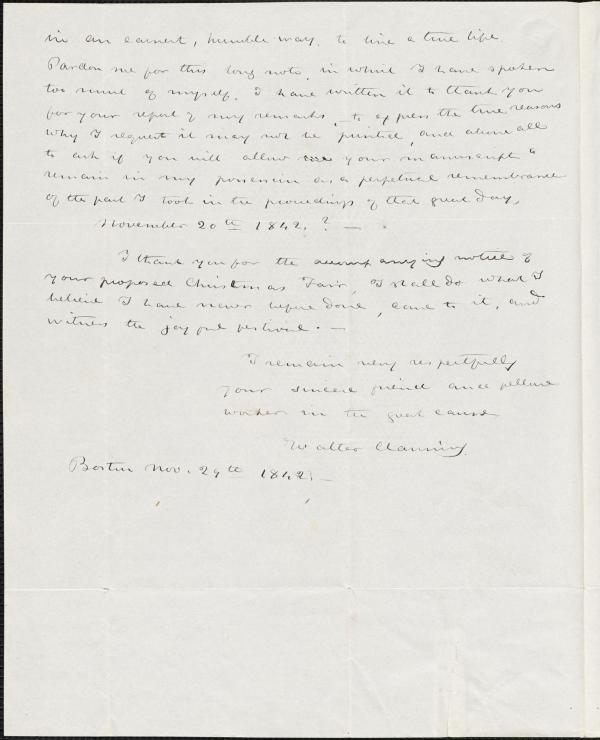 in an earnest, humble way, to live a true life.
Pardon me for this long note, in which I have spoken
too much of myself. I have written it to thank you
for your report of my remarks, to express the true reasons
why I request it may not be printed, and above all
to ask if you will allow your manuscript to
remain in my possession as a perpetual remembrance
of the part I took in the proceedings of that great day,
November 20th 1842.? —
I thank you for the accompanying notice of
your proposed Christmas Fair, I shall do what I
believe I have never before done, come to it, and
witness the joyful festival. —
I remain very respectfully
your sincere friend and fellow
worker in the great cause
Walter Channing.
Boston Nov. 29th 1842. —